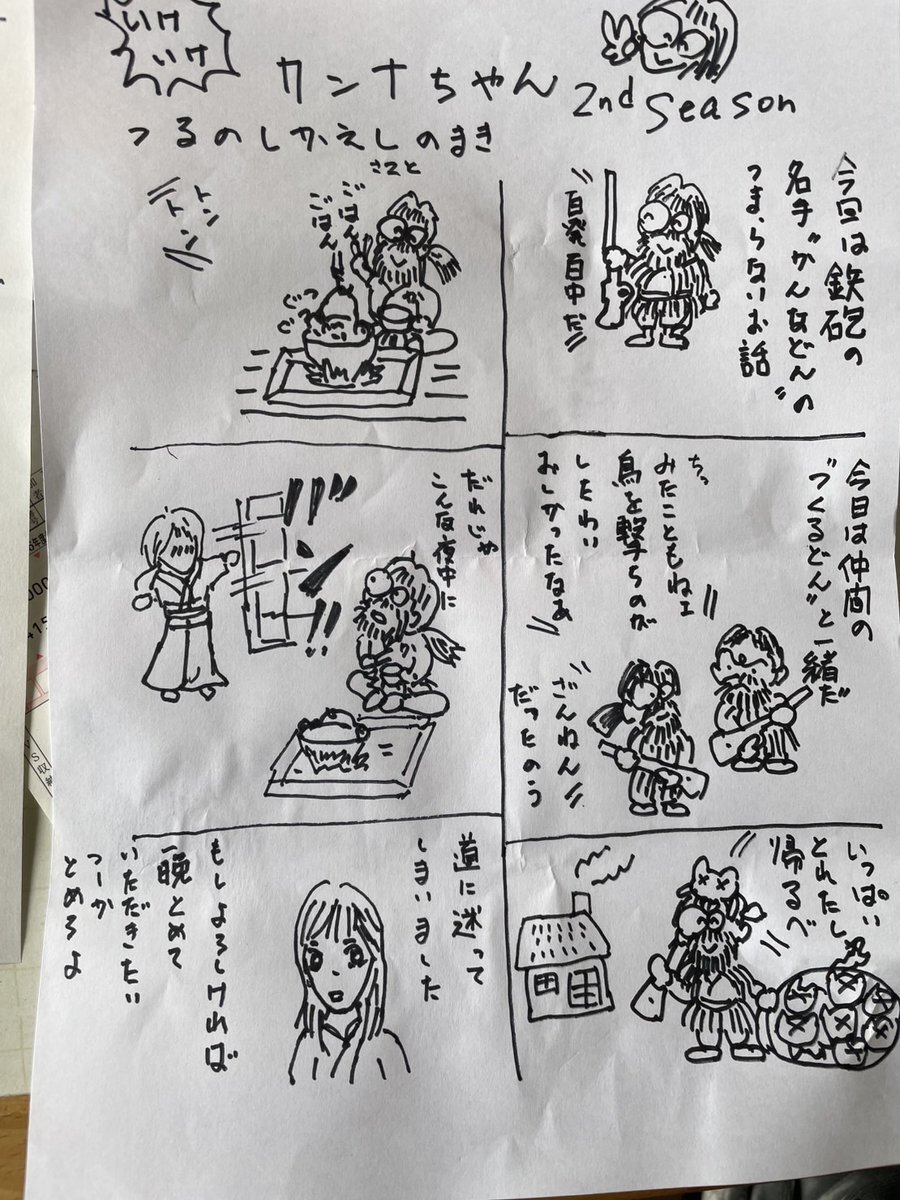 いけ
いけ
カンナちゃん
2nd Season
つるのしかえしのまき
今回は鉄砲の
名手"かんなどん"の
つまらないお話
"百発百中だ"
今日は仲間の
"つくるどん"と一緒だ
ちっ
みたこともねェ
鳥を撃ちのが
したわい
おしかったなぁ
ざんねん
だったのう
いっぱい
とれたし
帰るべ
さてと
ごはん
ごはん
ぐつ
ぐつ
トン
トン
だれじゃ
こんな夜中に
ガッ
!!
道に迷って
しまいました
もしよろしければ
一晩とめて
いただきたい
つーか
とめろよ